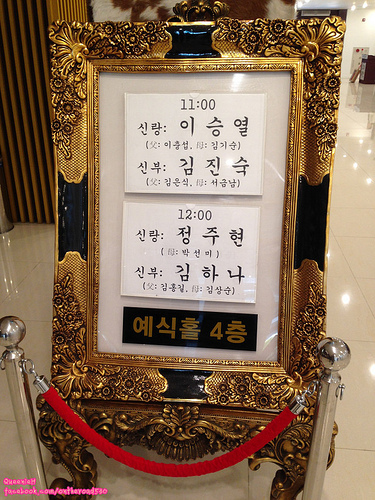 11:00
신랑: 이 승 열
(父: 이종섭, 母: 김기순)
신부: 김 진 숙
(父: 김은식, 母: 서금남)
12:00
신랑: 정 주 현
(母: 박 선 미)
신부: 김 하 나
(父: 김홍길, 母: 김상순)
예식홀 4층
Queeniell
facebook.com/ontheroad510